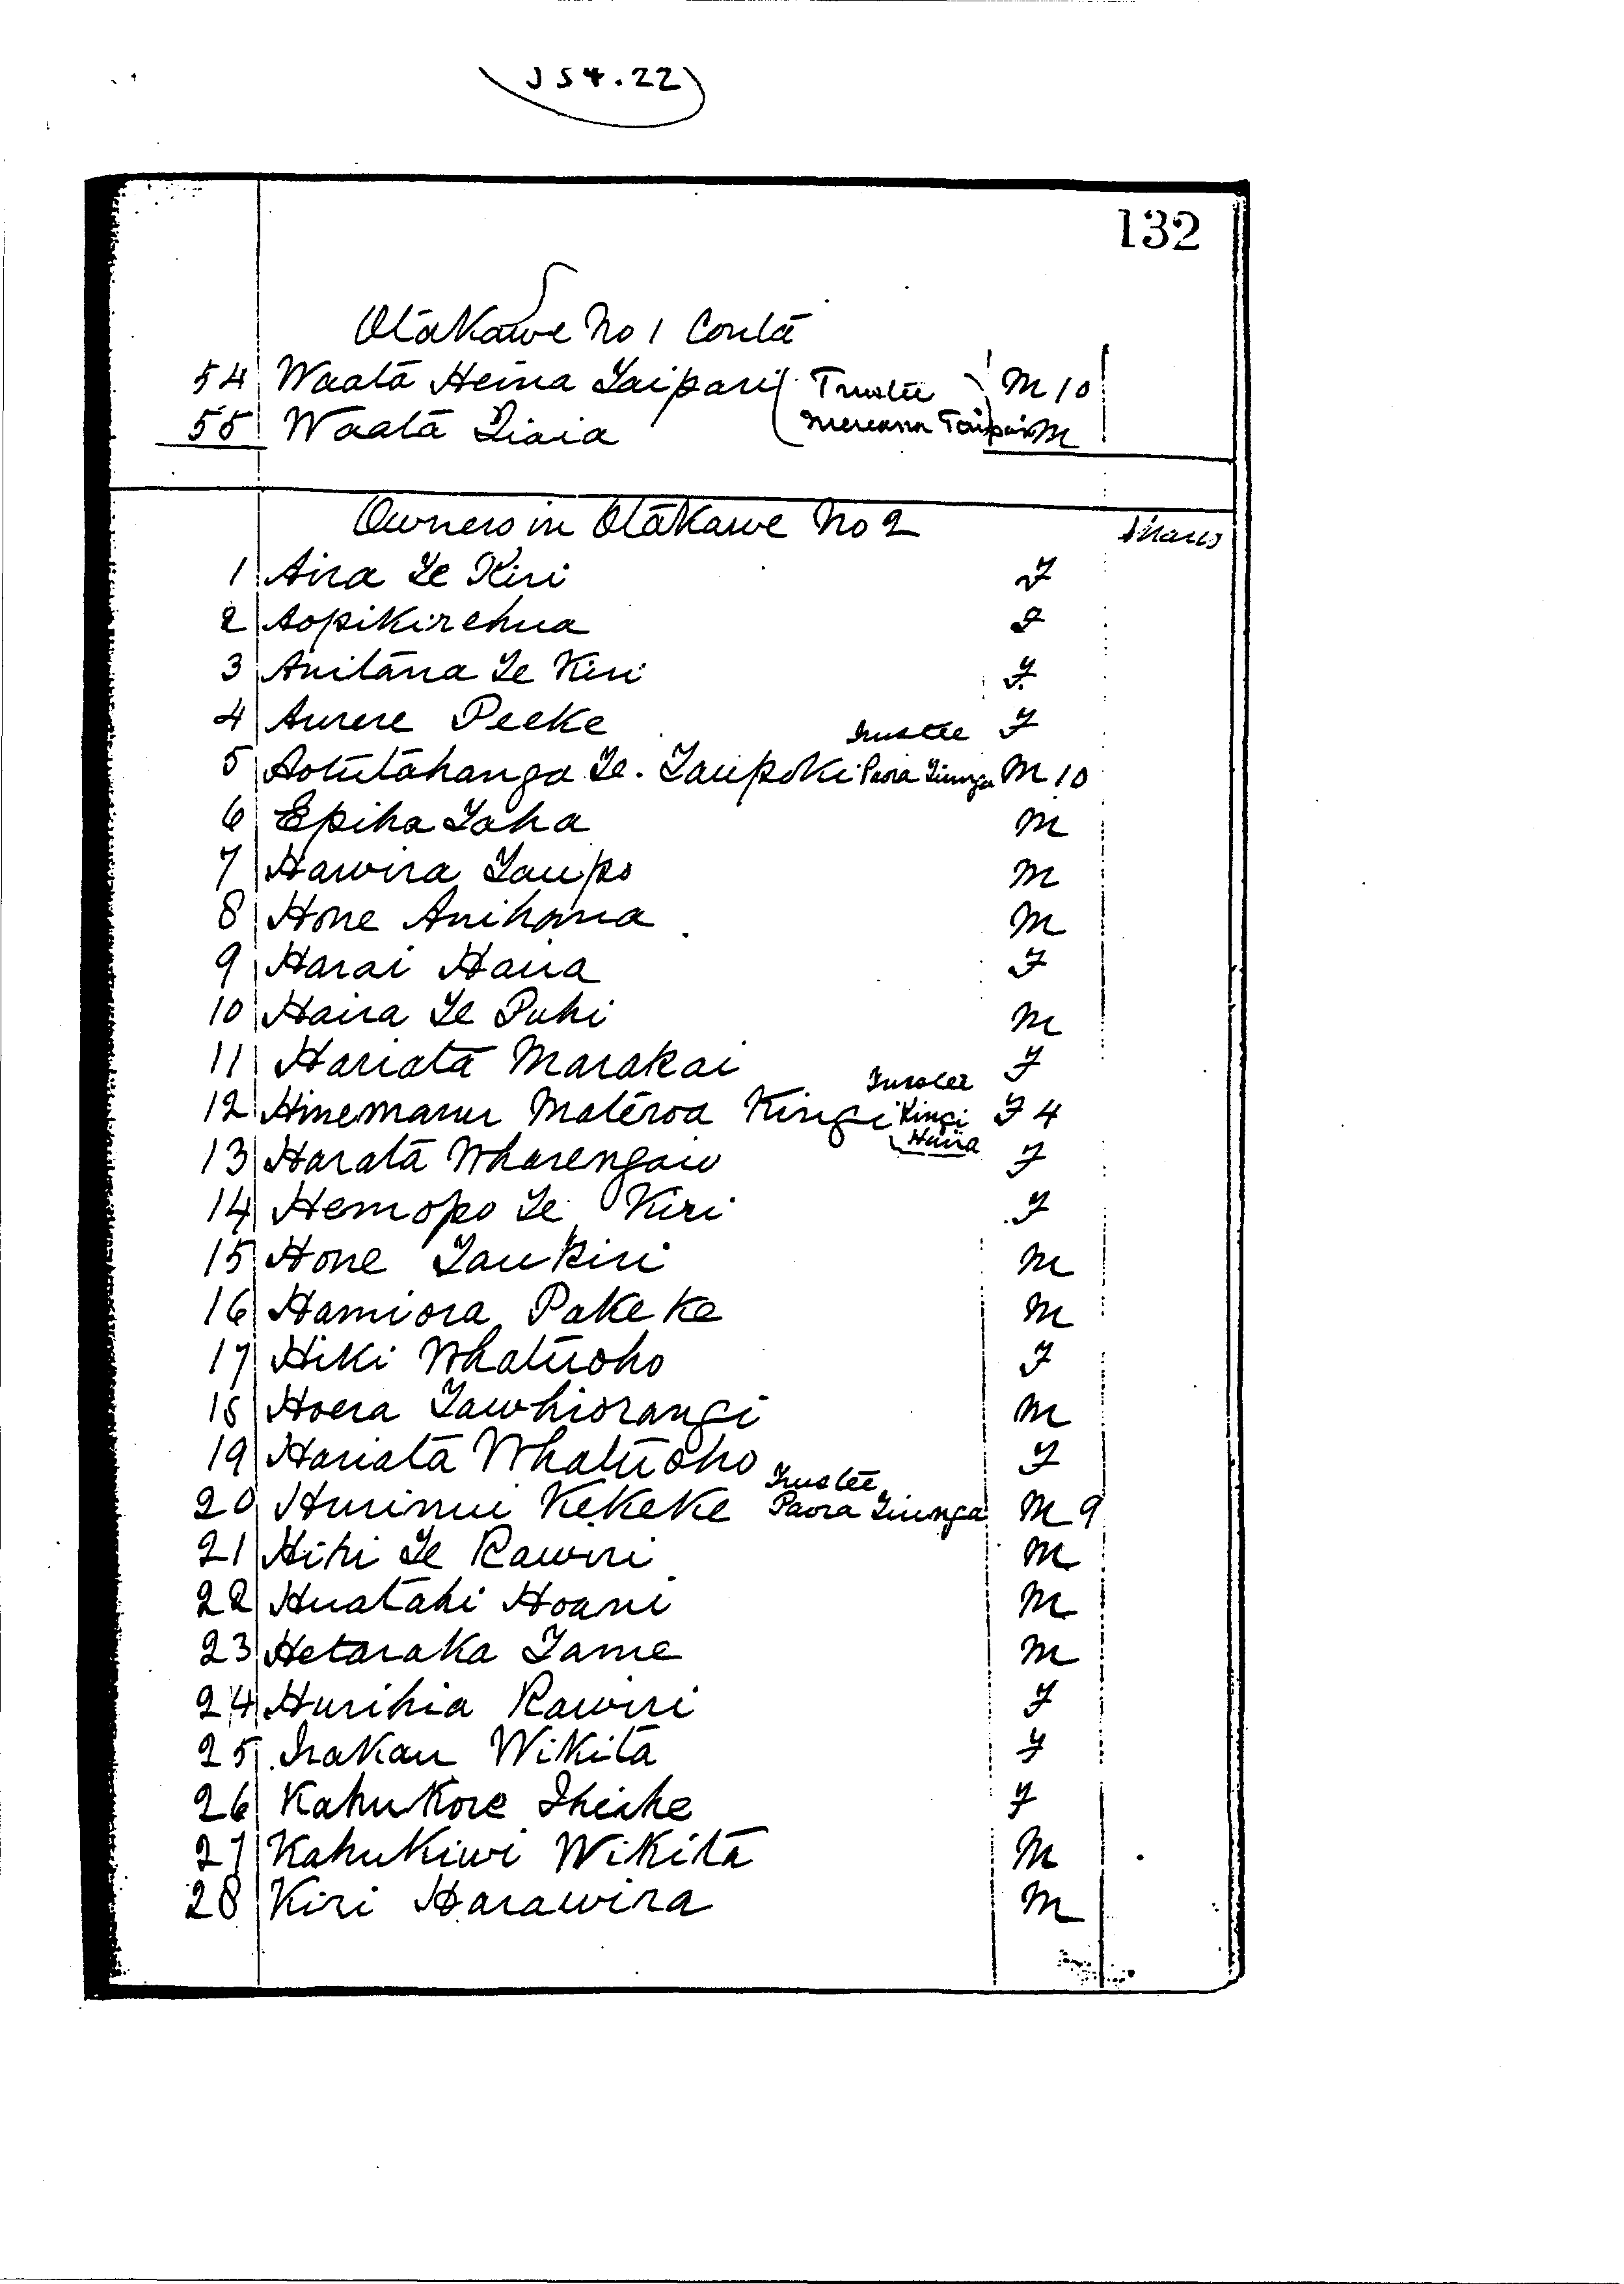 J54.22
132
Otakawe No 1 Contd
54 Waata Hema Taipari Trustee M 10
55 Waata Tiaia Mereana Taipari M
Owners in Otakawe No 2 Shares
1 Aira Te Kiri F
2 Aopikirehua F
3 Anitana Te Kiri F
4 Aurere Peeke F
Trustee
5 Aotutahanga Te. Taupoki Paora Tiunga M 10
6 Epiha Taha M
7 Hawira Taupo M
8 Hone Anihana M
9 Harai Haira F
10 Haira Te Puhi M
11 Hariata Marakai F
Trustee
12 Hinemanu Materoa Kingi Kingi F 4
Haira
13 Harata Wharengaio F
14 Hemopo Te Kiri F
15 Hone Taukiri M
16 Hamiora Pakeke M
17 Hiki Whatuoho F
18 Hoera Tawhiorangi M
19 Hariata Whatuoho F
Trustee
20 Hurinui Kekeke Paora Tiunga M 9
21 Hihi Te Rawiri M
22 Huatahi Hoani M
23 Hetaraka Tame M
24 Hurihia Rawiri F
25 Irakau Wikita F
26 Kahukore Iheihe F
27 Kahukiwi Wikita M
28 Kiri Harawira M